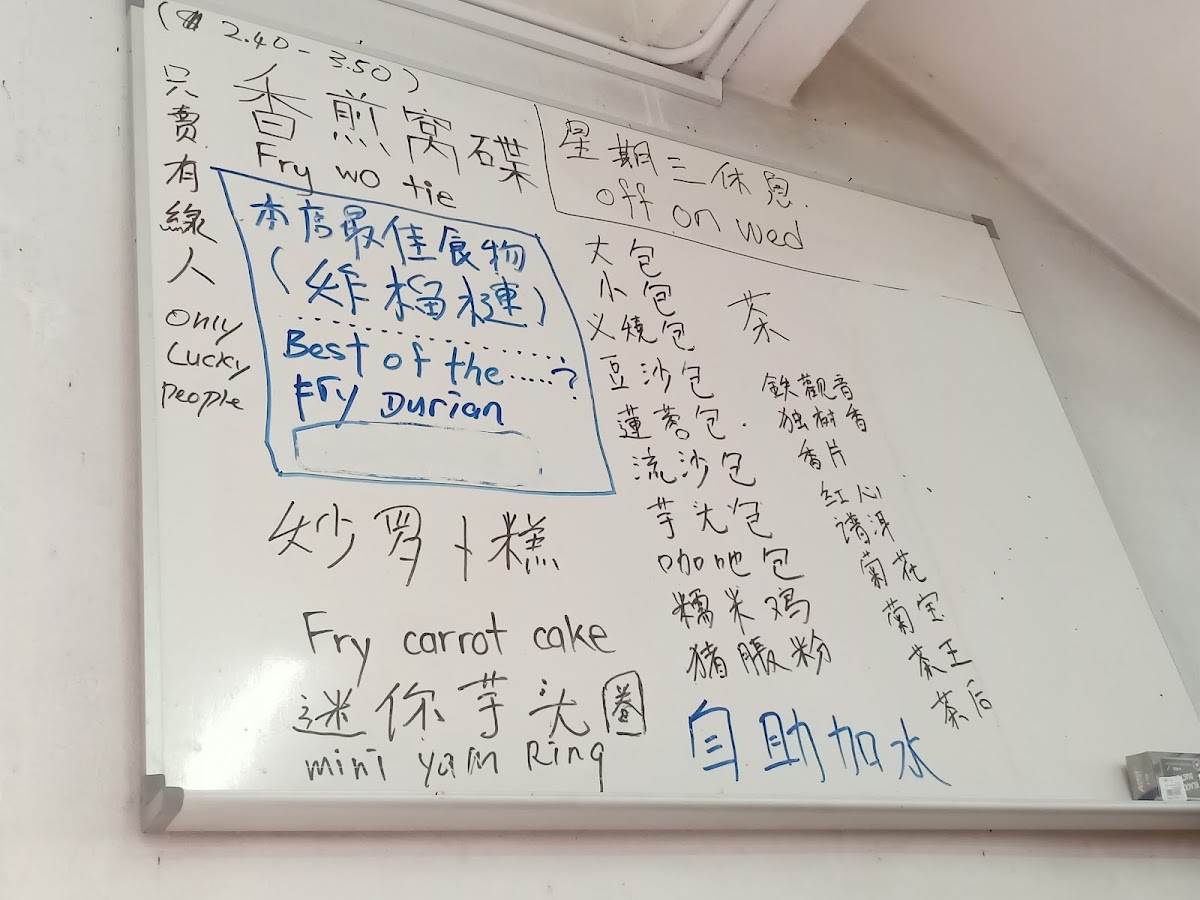 ( 2.40 - 3.50 )
只賣有線人
only
Lucky
people
香煎窝碟
Fry wo tie
本店最佳食物
(炸榴槤)
Best of the ..... ?
Fry Durian
炒罗卜糕
Fry carrot cake
迷你芋头圈
mini yam Ring
星期三休息.
off on wed
大包
小包
义燒包
豆沙包
蓮蓉包.
流沙包
芋头包
咖吔包
糯米鸡
猪脹粉
茶
鉄觀音
独树香
香片
红心
谱洱
菊花
菊宝
茶王
茶后
自助加水